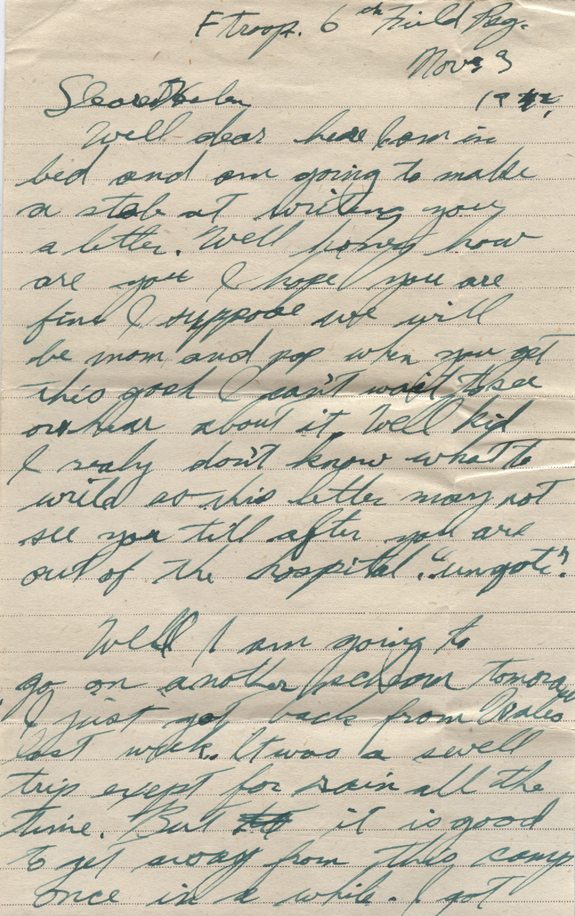 F troop. 6th Field Reg.
Nov 3
1942,
Dearest Helen
Well dear here I am in
bed and am going to make
a stab at writing you
a letter. Well honey how
are you I hope you are
fine I suppose we will
be mom and pop when you get
this gosh I can't wait to see
or hear about it. Well kid
I realy don't know what to
write so this letter may not
see you till after you are
out of the hospital. "unquote".
Well I am going to
go on another scheme tomorow
I just got back from Wales
last week. It was a swell
trip exept for rain all the
time. But it is good
to get away from this camp
once in a while. I got